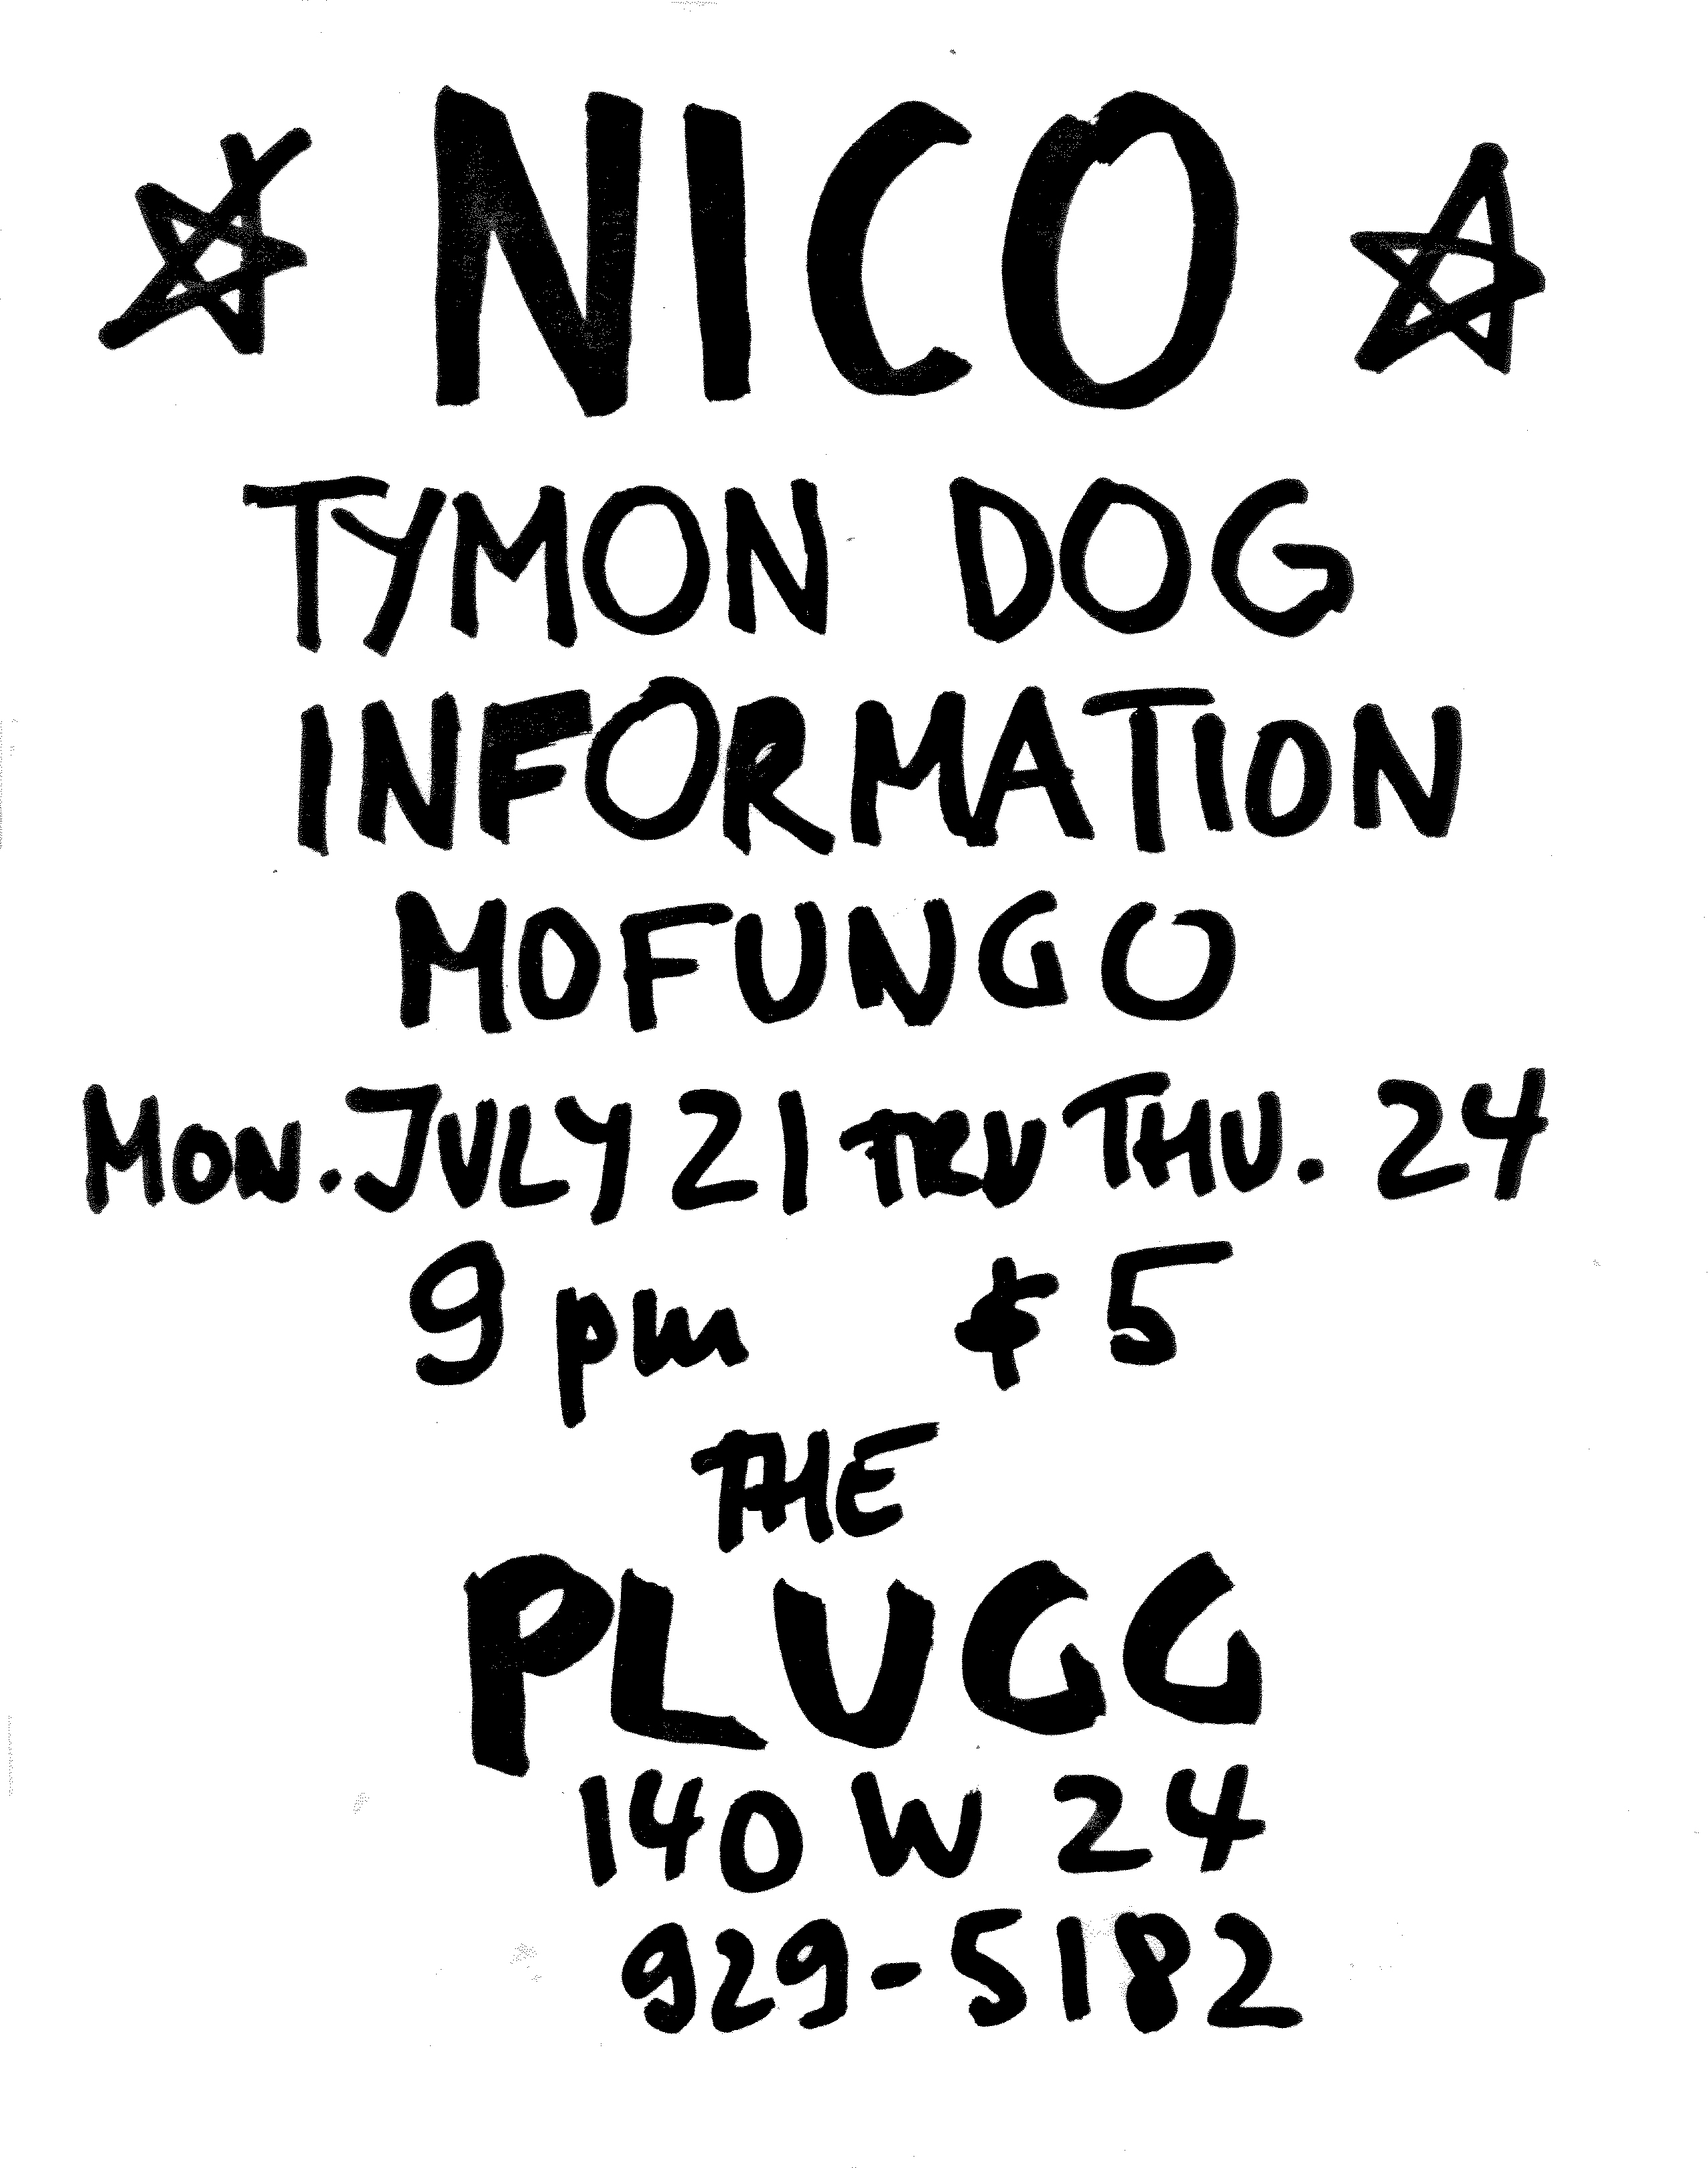 NICO
TYMON DOG
INFORMATION
MOFUNGO
MON. JULY 21 TRU THU. 24
9 pm $5
THE
PLUGG
140 W 24
929-5182